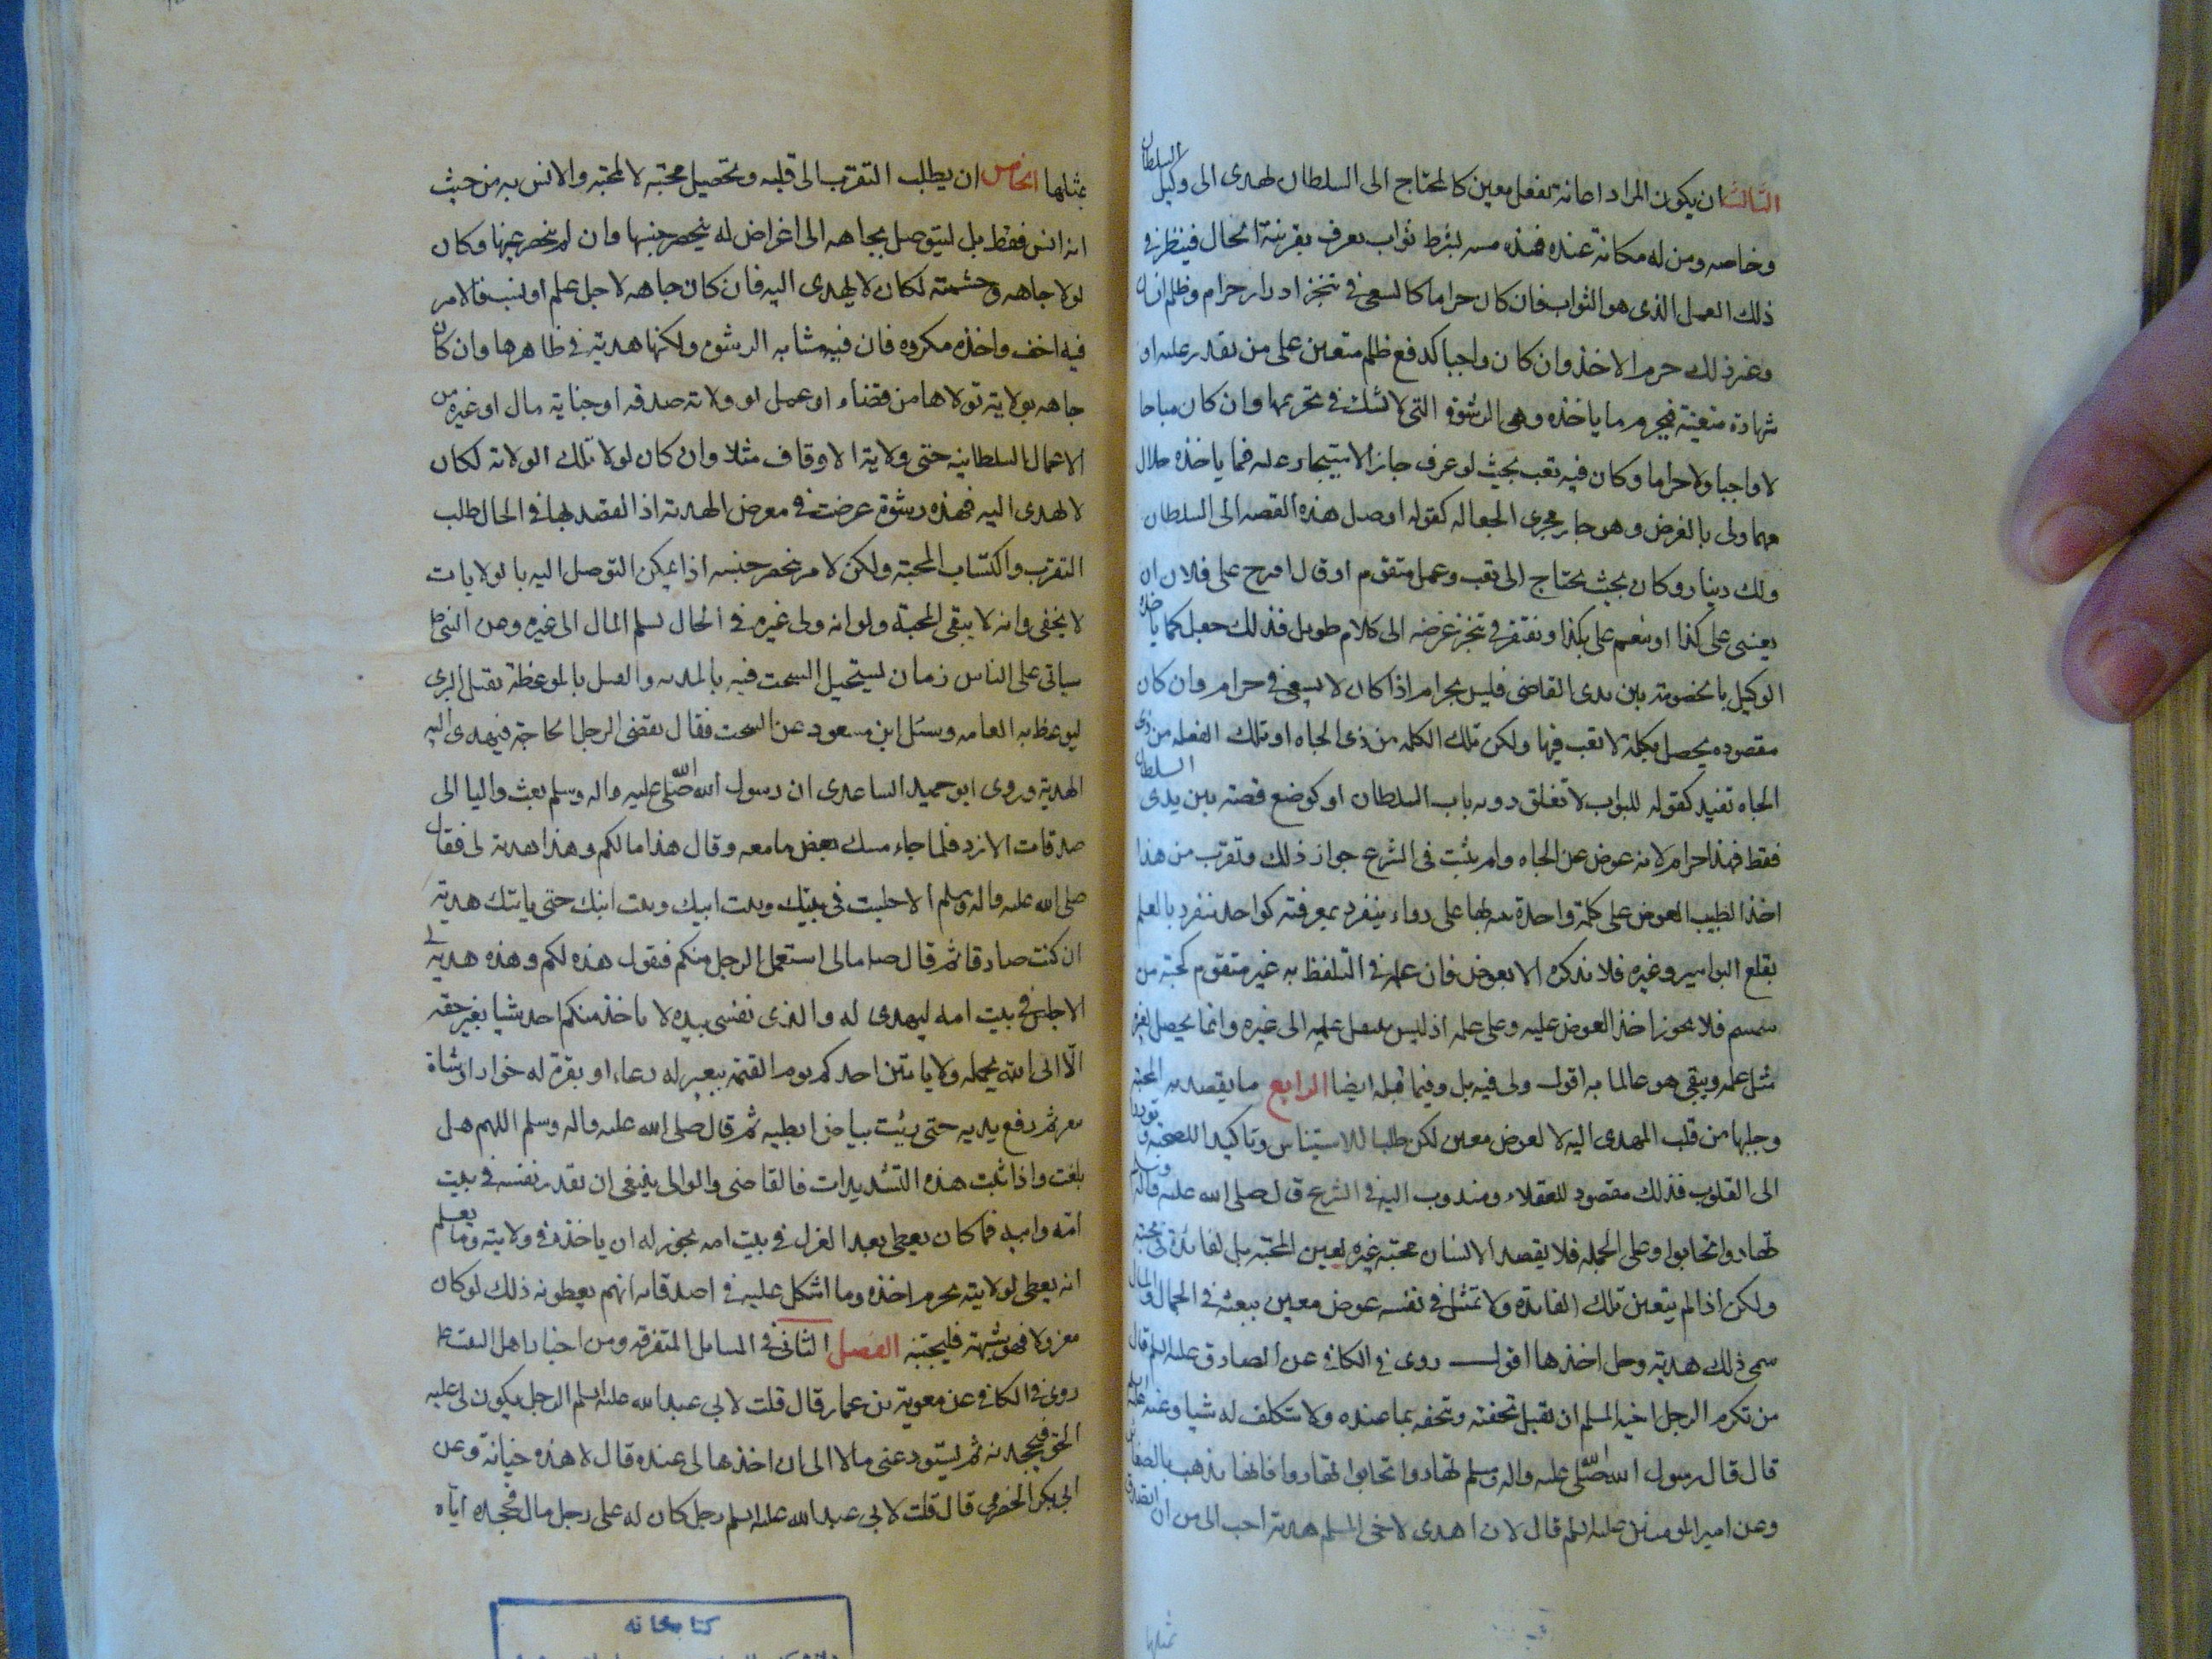 الثالث ان يكون المراد اعانة بفعل معين كالمحتاج الى السلطان يهدى الى وكيل السلطان
وخاصه ومن له مكانة عنده فهذه هديه بشرط ثواب يعرف بقرينة الحال فينظر فى
ذلك العمل الذى هو الثواب فان كان حراما كالسعى فى تنجز ادرار حرام وظلم انسان
وغير ذلك حرم الاخذ وان كان واجبا كدفع ظلم متعين على من يقدر عليه او
شهادة متعينة فيحرم ما ياخذه وهى الرشوة التى لا شك فى تحريمها وان كان مباحا
لا واجبا ولا حراما وكان فيه تعب بحيث لو عرف جاز الاستيجار عليه فما ياخذه حلال
مهما وفى بالغرض وهو جار مجرى الجعاله كقوله اوصل هذه القصه الى السلطان
ولك دينار وكان بحيث يحتاج الى تعب وعمل متقوم او قال اقترح على فلان ان
يعيننى على كذا او ينعم على بكذا ويفتقر فى تنجز غرضه الى كلام طويل فذلك جعل كما ياخذه
الوكيل بالخصومة بين يدى القاضى فليس بحرام اذا كان لا يسعى فى حرام وان كان
مقصوده يحصل بكلمة لا تعب فيها ولكن تلك الكلمه من ذى الجاه او تلك الفعله من ذى
الجاه تفيد كقوله للبواب لا تغلق دونه باب السلطان او كوضع قصته بين يدى السلطان
فقط فهذا حرام لانه عوض عن الجاه ولم يثبت فى الشرع جواز ذلك ويقرب من هذا
اخذ الطبيب العوض على كلمة واحدة ينبه بها على دواء ينفرد بمعرفته كواحد ينفرد بالعلم
بقلع البواسير وغيره فلا يذكره الا بعوض فان عمله فى التلفظ به غير متقوم كحبة من
سمسم فلا يجوز اخذ العوض عليه وعلى علمه اذ ليس ينتقل علمه الى غيره وانما يحصل لغيره
مثل علمه ويبقى هو عالما به اقول ولى فيه بل وفيما قبله ايضا الرابع ما يقصد به المحبة
وجلبها من قلب المهدى اليه لا لغرض معين لكن طلبا للاستيناس وتاكيدا للصحبة وتوددا
الى القلوب فذلك مقصود للعقلاء ومندوب اليه فى الشرع قال صلى الله عليه واله وسلم
تهادوا تحابوا وعلى الجمله فلا يقصد الانسان محبة غيره لعين المحبة بل لفائدة فى محبته
ولكن اذا لم يتعين تلك الفائدة ولا تمثل فى نفسه عوض معين يبعثه فى الحال والمال
سمى ذلك هدية وحل اخذها اقول روى فى الكافى عن الصادق عليه السلم قال
من تكرم الرجل اخيه المسلم ان يقبل تحفته ويتحفه بما عنده ولا يتكلف له شيا وعنه عليه السلم
قال قال رسول الله صلى عليه واله وسلم تهادوا تحابوا تهادوا فانها تذهب بالضغائن
وعن امير المومنين عليه السلم قال لان اهدى لاخى المسلم هدية احب الى من ان اتصدق
بمثلها
بمثلها الخامس ان يطلب التقرب الى قلبه وتحصيل محبته لا لمحبته والانس به من حيث
انه انس فقط بل ليتوصل بجاهه الى اغراض له ينحصر جنسها وان لم ينحصر عينها وكان
لولا جاهه وحشمته لكان لا يهدى اليه فان كان جاهه لاجل علم او نسب فالامر
فيه اخف واخذه مكروه فان فيه مشابه الرشوه ولكنها هدية فى ظاهرها وان كان
جاهه بولاية تولاها من قضاء او عمل او ولاية صدقه او جباية مال او غيره من
الاعمال السلطانيه حتى ولاية الاوقاف مثلا وان كان لولا تلك الولاية لكان
لا يهدى اليه فهذه رشوة عرضت فى معرض الهدية اذ القصد بها فى الحال طلب
التقرب واكتساب المحبة ولكن لامر ينحصر جنسه اذ ما يمكن التوصل اليه بالولايات
لا يخفى وانه لا يبقى المحبة ولو انه ولى غيره فى الحال لسلم المال الى غيره وعن النبى ص
سياتى على الناس زمان يستحيل السحت فيه بالهديه والقتل بالموعظة يقتل البرى
ليوعظ به العامه وسئل ابن مسعود عن السحت فقال يقضى الرجل الحاجة فيهدى اليه
الهدية وروى ابو حميد الساعدى ان رسول الله صلى الله عليه واله وسلم بعث واليا الى
صدقات الازد فلما جاء مسك بعض ما معه وقال هذا ما لكم وهذا هدية لى فقال
صلى الله عليه واله وسلم الا جلست فى بيتك وبيت ابيك وبيت امك حتى ياتيك هدية
ان كنت صادقا ثم قال ص مالى استعمل الرجل منكم فيقول هذه لكم وهذه هدية لى
الا جلس فى بيت امه ليهدى له والذى نفسى بيده لا ياخذ منكم احد شيا بغير حقه
الّا اتى الله يحمله ولا ياتين احدكم يوم القيمة ببعير له رغاء او بقرة له خوار او شاة
تيعر ثم رفع يديه حتى رئيت بياض ابطيه ثم قال صلى الله عليه واله وسلم اللهم هل
بلغت واذا ثبت هذه التشديدات فالقاضى والوالى ينبغى ان يقدر نفسه فى بيت
امه وابيه فما كان يعطى بعد العزل فى بيت امه يجوز له ان ياخذه فى ولايته وما يعلم
انه يعطى لولايته يحرم اخذه وما اشكل عليه فى اصدقائه انهم يعطونه ذلك لو كان
معزولا فهو شبهة فليجتنبه الفصل الثانى فى المسايل المتفرقه ومن اخبار اهل البيت ع
روى فى الكافى عن معوية بن عمار قال قلت لابى عبد الله عليه السلم الرجل يكون لى عليه
الحق فيجحدنيه ثم يستودعنى مالا الى ان اخذ مالى عنده قال لا هذه خيانة وعن
ابى بكر الحضرمى قال قلت لابى عبد الله عليه السلم رجل كان له على رجل مال فجحده اياه
كتابخانه